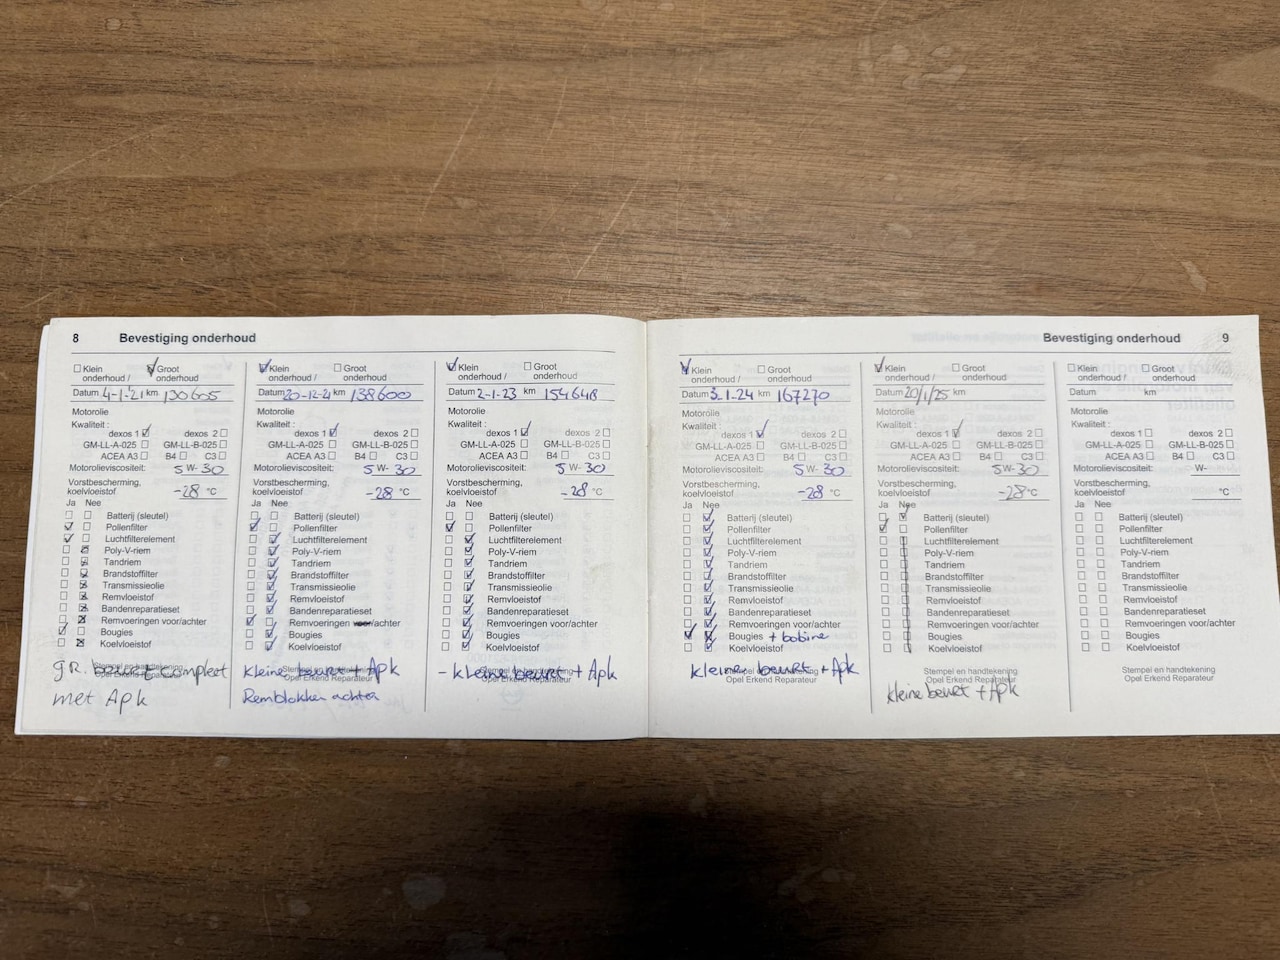 8 Bevestiging onderhoud
Klein onderhoud / Groot onderhoud
Datum 4-1-21 km 130605
Motorolie
Kwaliteit :
dexos 1 dexos 2
GM-LL-A-025 GM-LL-B-025
ACEA A3 B4 C3
Motorolieviscositeit: 5 W- 30
Vorstbescherming,
koelvloeistof -28 °C
Ja Nee
Batterij (sleutel)
Pollenfilter
Luchtfilterelement
Poly-V-riem
Tandriem
Brandstoffilter
Transmissieolie
Remvloeistof
Bandenreparatieset
Remvoeringen voor/achter
Bougies
Koelvloeistof
Stempel en handtekening
Opel Erkend Reparateur
gR. beurt compleet
met Apk
Klein onderhoud / Groot onderhoud
Datum 20-12-21 km 138600
Motorolie
Kwaliteit :
dexos 1 dexos 2
GM-LL-A-025 GM-LL-B-025
ACEA A3 B4 C3
Motorolieviscositeit: 5 W- 30
Vorstbescherming,
koelvloeistof -28 °C
Ja Nee
Batterij (sleutel)
Pollenfilter
Luchtfilterelement
Poly-V-riem
Tandriem
Brandstoffilter
Transmissieolie
Remvloeistof
Bandenreparatieset
Remvoeringen voor/achter
Bougies
Koelvloeistof
Stempel en handtekening
Opel Erkend Reparateur
kleine beurt + Apk
Remblokken achter
Klein onderhoud / Groot onderhoud
Datum 2-1-23 km 154648
Motorolie
Kwaliteit :
dexos 1 dexos 2
GM-LL-A-025 GM-LL-B-025
ACEA A3 B4 C3
Motorolieviscositeit: 5 W- 30
Vorstbescherming,
koelvloeistof -28 °C
Ja Nee
Batterij (sleutel)
Pollenfilter
Luchtfilterelement
Poly-V-riem
Tandriem
Brandstoffilter
Transmissieolie
Remvloeistof
Bandenreparatieset
Remvoeringen voor/achter
Bougies
Koelvloeistof
Stempel en handtekening
Opel Erkend Reparateur
- kleine beurt + Apk
Bevestiging onderhoud 9
Klein onderhoud / Groot onderhoud
Datum 3-1-24 km 167270
Motorolie
Kwaliteit :
dexos 1 dexos 2
GM-LL-A-025 GM-LL-B-025
ACEA A3 B4 C3
Motorolieviscositeit: 5 W- 30
Vorstbescherming,
koelvloeistof -28 °C
Ja Nee
Batterij (sleutel)
Pollenfilter
Luchtfilterelement
Poly-V-riem
Tandriem
Brandstoffilter
Transmissieolie
Remvloeistof
Bandenreparatieset
Remvoeringen voor/achter
Bougies + bobine
Koelvloeistof
Stempel en handtekening
Opel Erkend Reparateur
kleine beurt + Apk
Klein onderhoud / Groot onderhoud
Datum 20/1/25 km
Motorolie
Kwaliteit :
dexos 1 dexos 2
GM-LL-A-025 GM-LL-B-025
ACEA A3 B4 C3
Motorolieviscositeit: 5 W- 30
Vorstbescherming,
koelvloeistof -28 °C
Ja Nee
Batterij (sleutel)
Pollenfilter
Luchtfilterelement
Poly-V-riem
Tandriem
Brandstoffilter
Transmissieolie
Remvloeistof
Bandenreparatieset
Remvoeringen voor/achter
Bougies
Koelvloeistof
Stempel en handtekening
Opel Erkend Reparateur
kleine beurt + Apk
Klein onderhoud / Groot onderhoud
Datum km
Motorolie
Kwaliteit :
dexos 1 dexos 2
GM-LL-A-025 GM-LL-B-025
ACEA A3 B4 C3
Motorolieviscositeit: W-
Vorstbescherming,
koelvloeistof °C
Ja Nee
Batterij (sleutel)
Pollenfilter
Luchtfilterelement
Poly-V-riem
Tandriem
Brandstoffilter
Transmissieolie
Remvloeistof
Bandenreparatieset
Remvoeringen voor/achter
Bougies
Koelvloeistof
Stempel en handtekening
Opel Erkend Reparateur